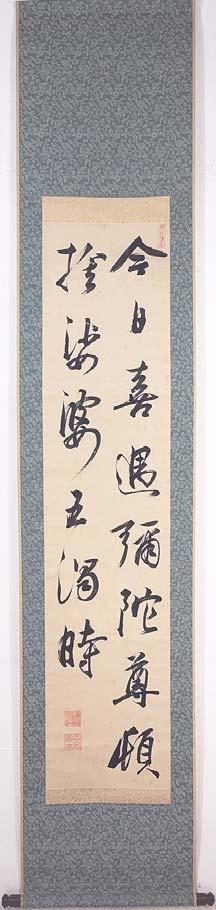 今日喜遇彌陀尊頓
捨娑婆五濁時